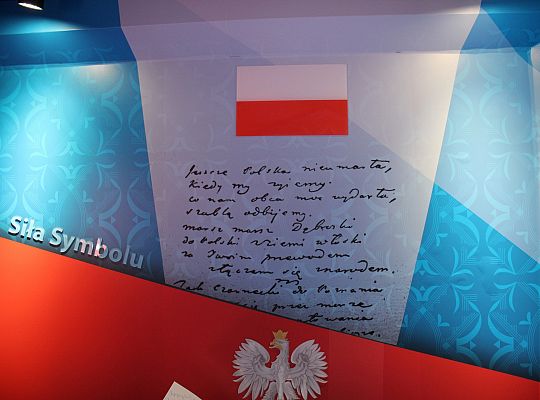 Jeszcze Polska nieumarła,
kiedy my żyjemy.
co nam obca moc wydarła,
szablą odbijemy.
marsz marsz Dąbroski
do Polski z ziemi włoski
za Twoim przewodem
złączem się z narodem.
Jak Czarnecki do Poznania
przez morze
Siła Symbolu